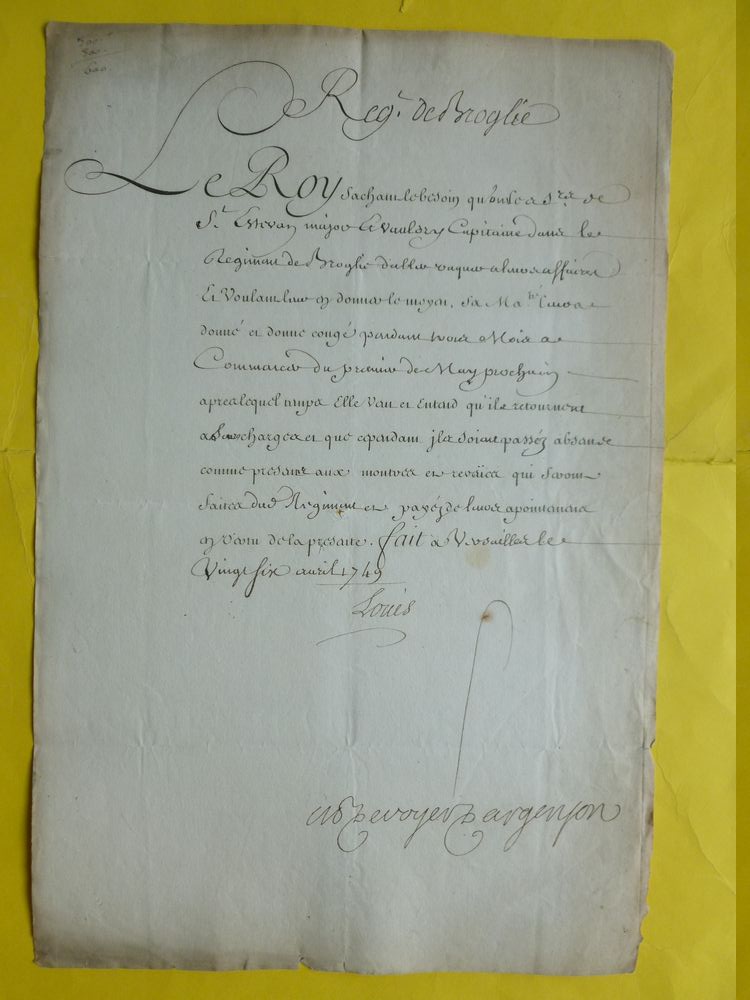 300.
300.
600.
Reg.t de Broglie
Le Roy Sachant le besoin qu'ont les S.rs de
S.t Estevan major et Vaulsery Capitaine dans le
Regiment de Broglie d'aller vaquer a leurs affaires
Et Voulant leur en donner le moyen, Sa Ma.té leur a
donné et donne congé pendant trois Mois a
Commancer du premier de May prochain
apres lequel temps Elle Veut et Entend qu'ils retournent
a leurs charges et que cependant jls soient passéz absens
comme presens aux montres et reveües qui seront
faites dud Regiment et payéz de leurs apointemens
en Vertu de la presente. fait a Versailles le
Vingt six avril 1749
Louis
De voyer D'argenson